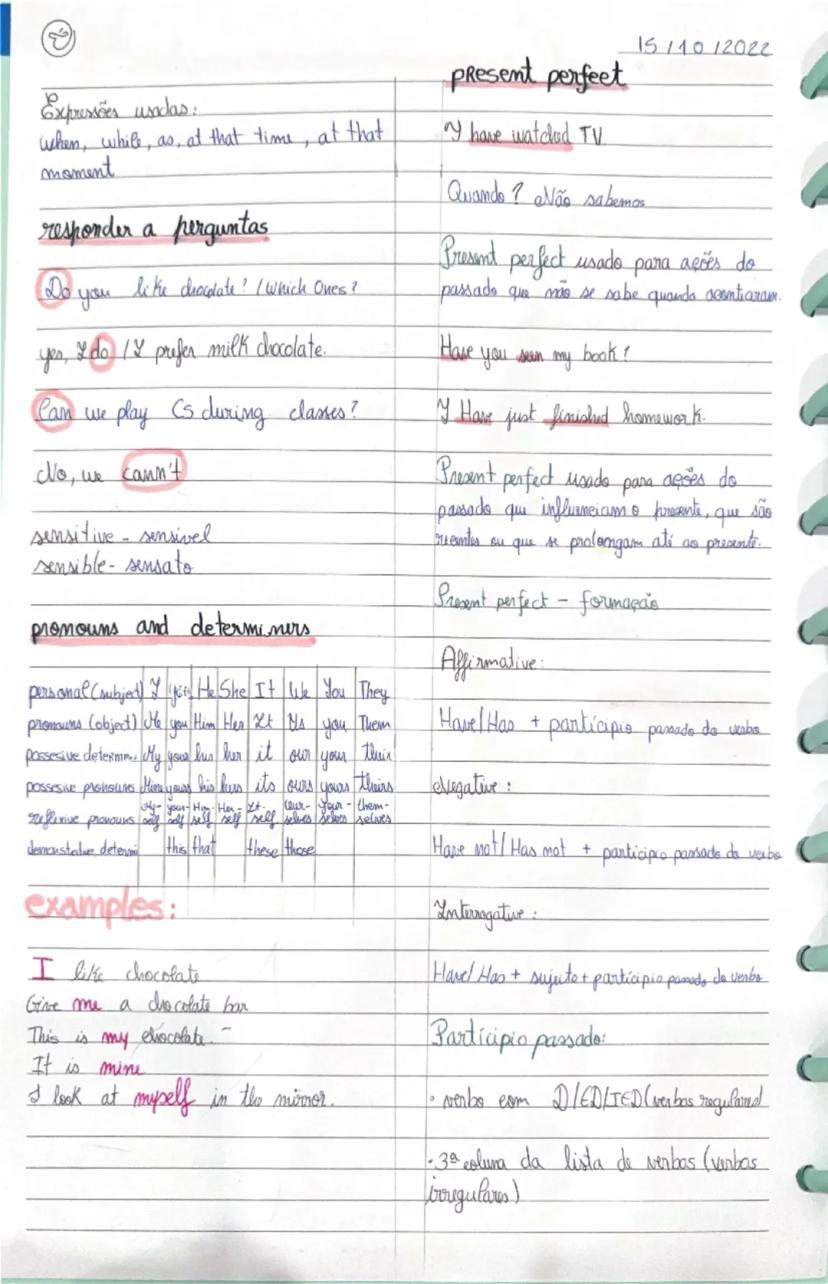 15/10/2022
Expressões usadas:
when, while, as, at that time, at that
moment
responder a perguntas
Do you like chocolate? / Which Ones?
yes, I do / I prefer milk chocolate.
Can we play Cs during classes?
No, we cann't
sensitive - sensível
sensible - sensato
pronouns and determiners
personal (subject) I you He She It We You They
pronouns (object) Me you Him Her It Us you Them
possesive determin. My your his her it our your their
possesive pronouns Mine yours his hers its ours yours theirs
reflexive pronouns My-self your-self Him-self Her-self It-self our-selves Your-selves them-selves
demonstative determi this that these those
examples:
I like chocolate
Give me a chocolate bar
This is my chocolate.
It is mine
I look at myself in the mirror.
present perfect
I have watched TV.
Quando? Não sabemos
Present perfect usado para ações do
passado que não se sabe quando acontiaram.
Have you seen my book?
I Have just finished homework.
Present perfect usado para ações do
passado que influenciam o presente, que são
recentes ou que se prolongam até ao presente.
Present perfect - formação
Affirmative:
Have/Has + particípio passado do verbo
Negative:
Have not/Has not + particípio passado do verbo
Interrogative:
Have/Has + sujeito + particípio passado do verbo
Particípio passado:
• verbo com D/ED/IED (verbos regulares)
• 3ª coluna da lista de verbos (verbos
irregulares)